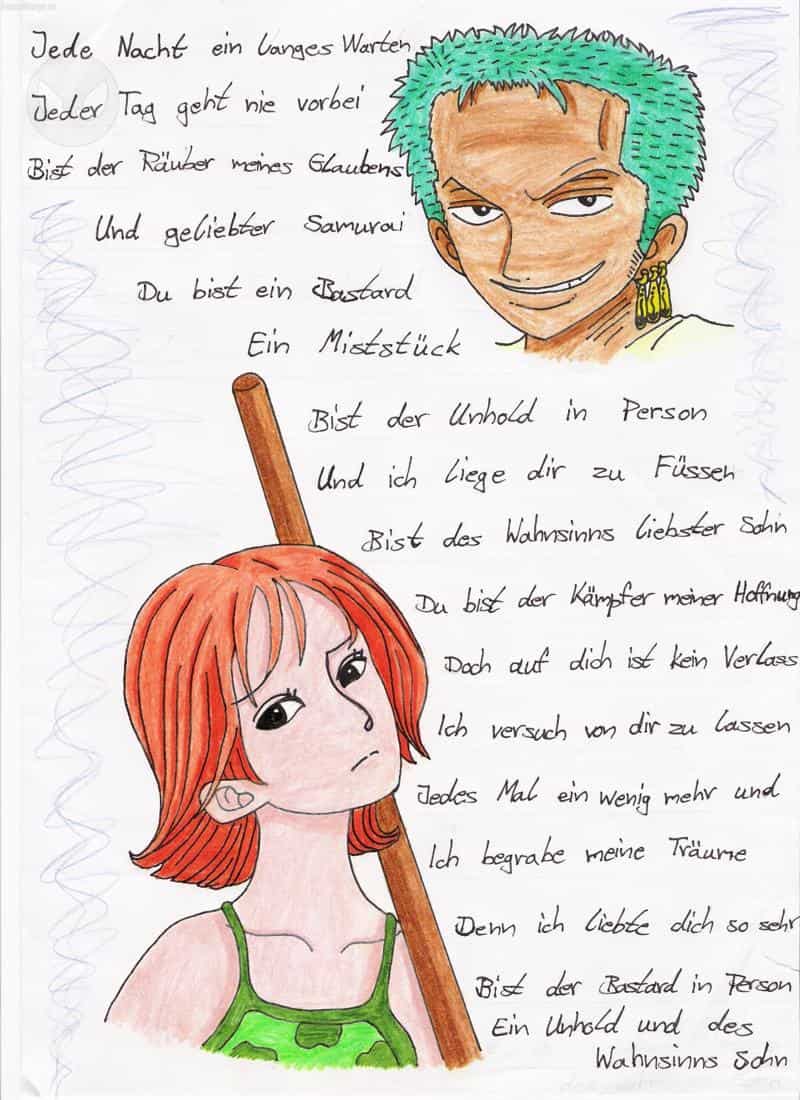 Jede Nacht ein langes Warten
Jeder Tag geht nie vorbei
Bist der Räuber meines Glaubens
Und geliebter Samurai
Du bist ein Bastard
Ein Miststück
Bist der Unhold in Person
Und ich liege dir zu Füssen
Bist des Wahnsinns liebster Sohn
Du bist der Kämpfer meiner Hoffnung
Doch auf dich ist kein Verlass
Ich versuch von dir zu lassen
Jedes Mal ein wenig mehr und
Ich begrabe meine Träume
Denn ich liebte dich so sehr
Bist der Bastard in Person
Ein Unhold und des
Wahnsinns Sohn